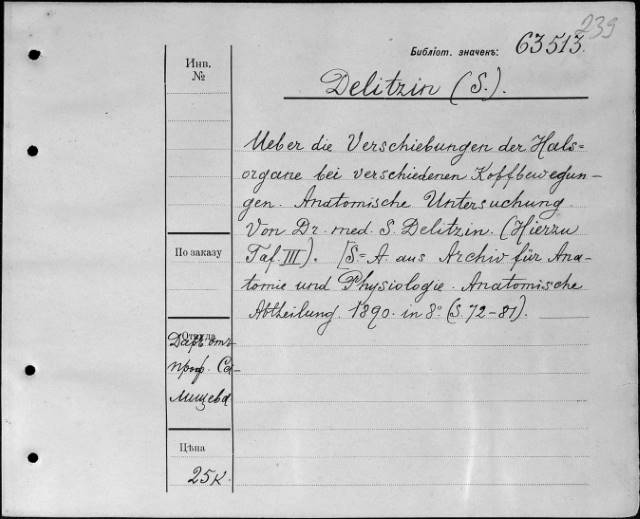 239
Библіот. значекъ: 63513.
Инв.
№
Delitzin (S.).
Ueber die Verschiebungen der Hals=
organe bei verschiedenen Kopfbewegun-
gen. Anatomische Untersuchung.
Von Dr. med. S. Delitzin. (Hierzu
Taf. III). [S=A. aus Archiv für Ana-
tomie und Physiologie. Anatomische
Abtheilung. 1890. in 8° (S. 72-81).
По заказу
Откуда
Даръ отъ
проф. Са-
лищева
Цѣна
25к.